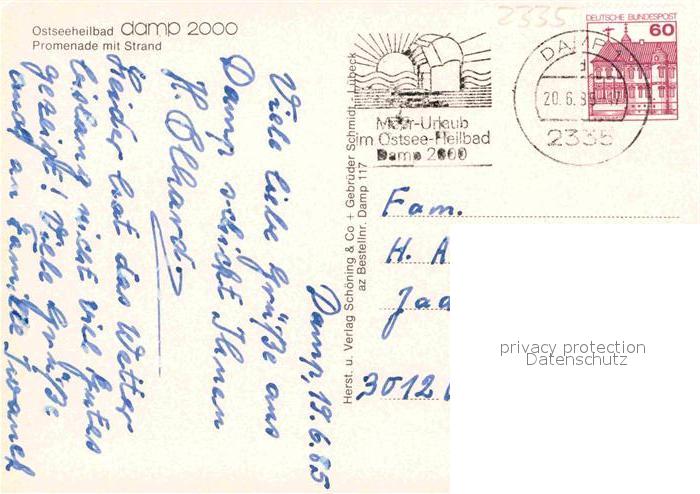 Ostseeheilbad damp 2000
Promenade mit Strand
2335
DEUTSCHE BUNDESPOST
60
DAMP 1
d
20.6.85-17
2335
Meer-Urlaub
im Ostsee-Heilbad
Damp 2000
Herst. u. Verlag Schöning & Co + Gebrüder Schmidt - Lübeck
az Bestellnr. Damp 117
Damp, 19.6.85
Viele liebe Grüße aus
Damp schickt Ihnen
H. Olhard
Leider hat das Wetter
bislang nicht viel Gutes
gezeigt! Viele Grüße
auch an Familie
Fam.
H. A
Jaa
3012
privacy protection
Datenschutz